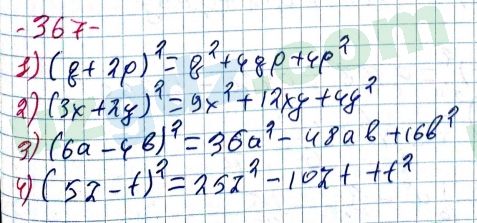 -367-
1) (q + 2p)² = q² + 4qp + 4p²
2) (3x + 2y)² = 9x² + 12xy + 4y²
3) (6a - 4b)² = 36a² - 48ab + 16b²
4) (5z - t)² = 25z² - 10zt + t²